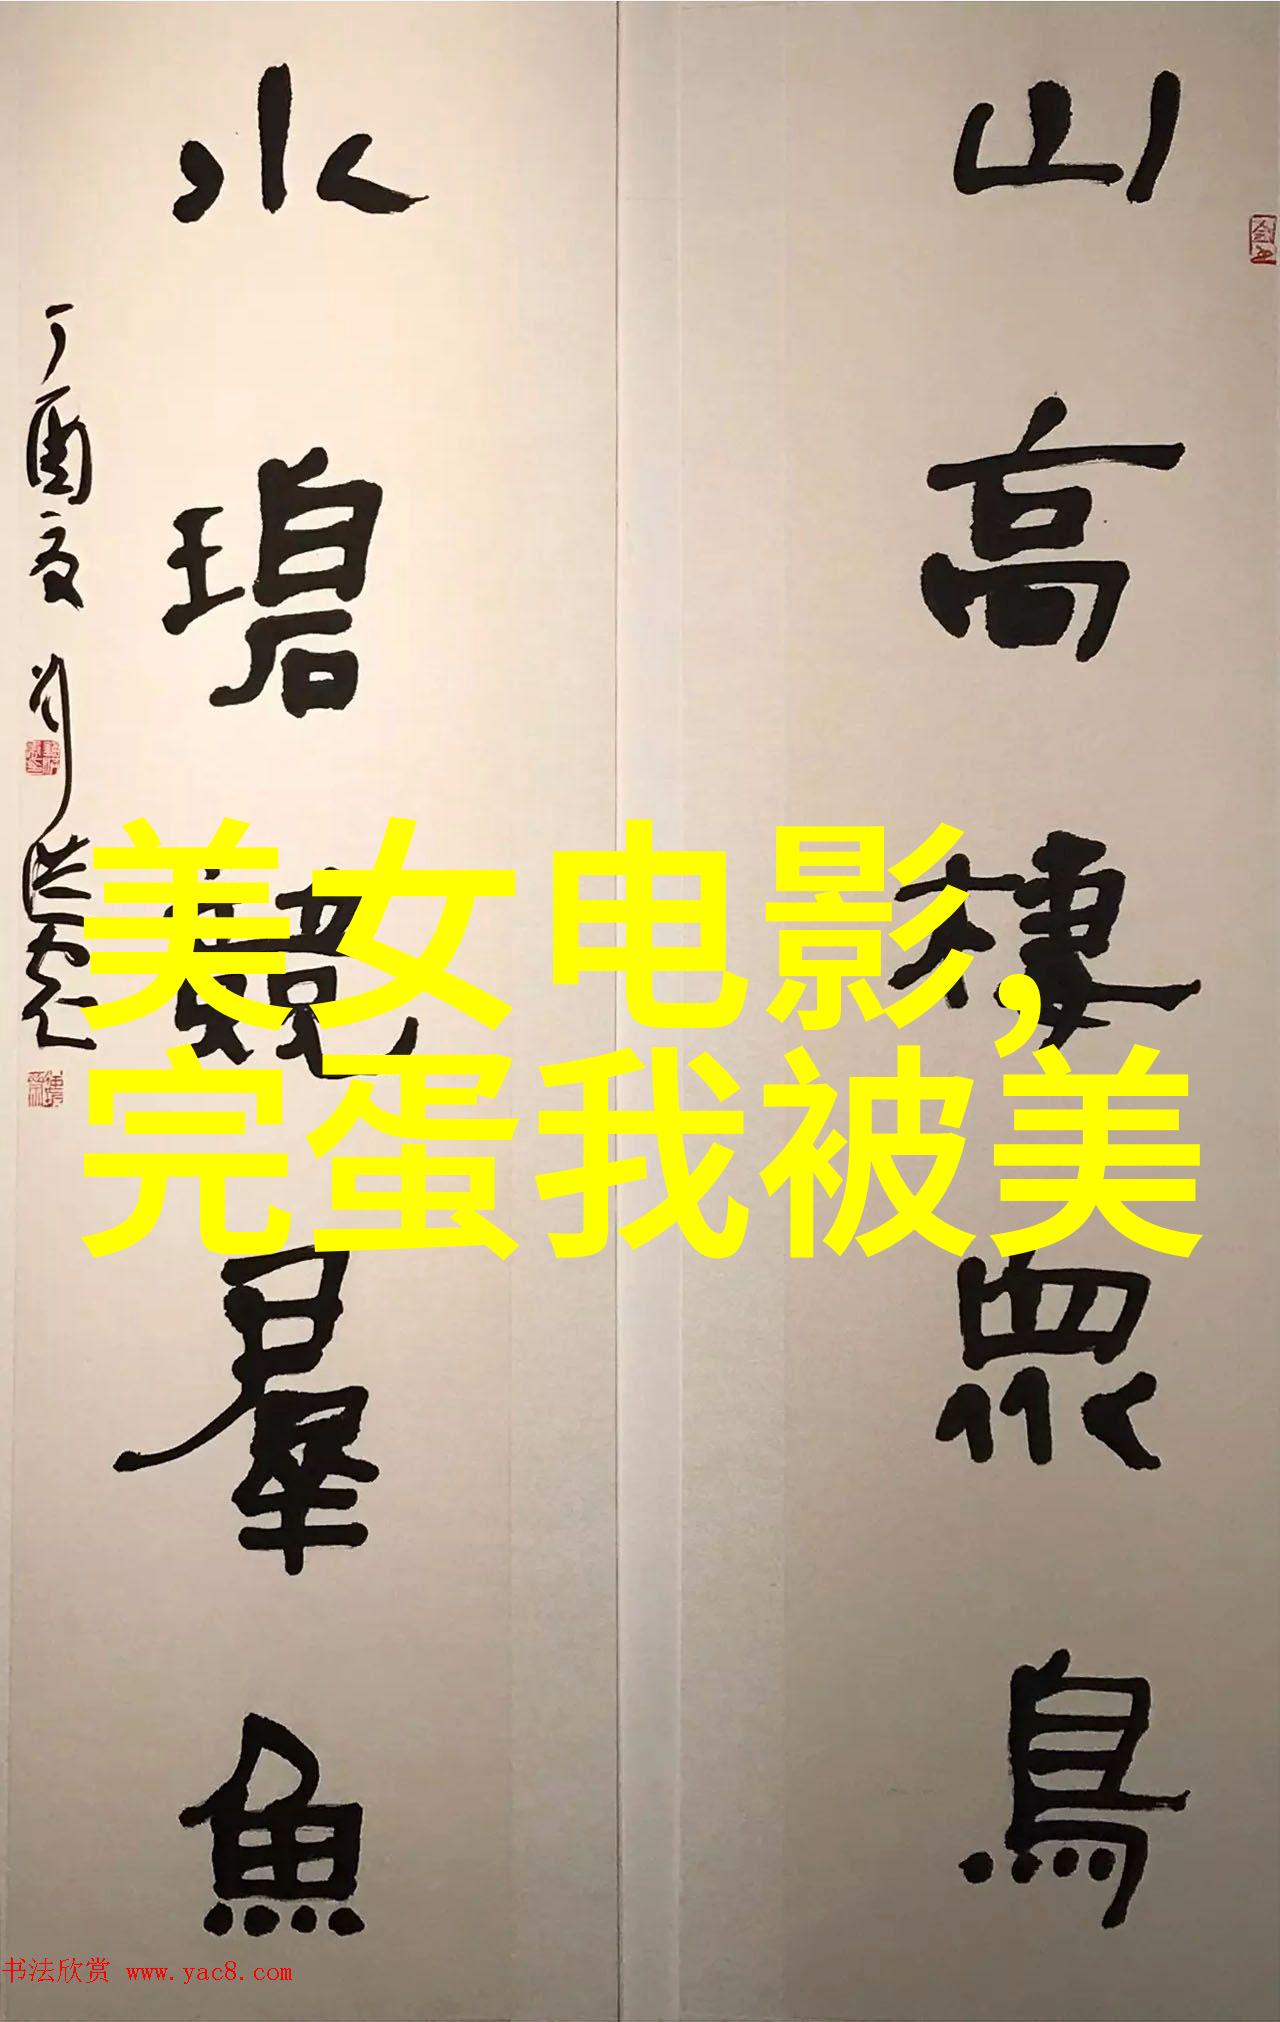 山高棲眾鳥
水碧競羣魚
丁酉夏
美女电影,
完蛋我被美
书法欣赏 www.yac8.com